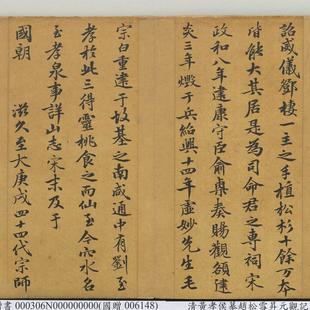 詔威儀鄧棲一主之手植松杉十餘万本
皆能大其居是為司命君之專祠宋
政和八年建康守臣俞㮚奏賜觀額建
炎三年燬于兵紹興十四年虛妙先生毛
宗白重建于故基之南咸通中有劉至
孝於此三得靈桃食之而仙至今穴水名
至孝泉事詳山志宋末及于
國朝 滋久至大庚戌四十四代宗師
書 000306N000000000(國贈 006148) 清黃孝侯摹趙松雪昇元觀記